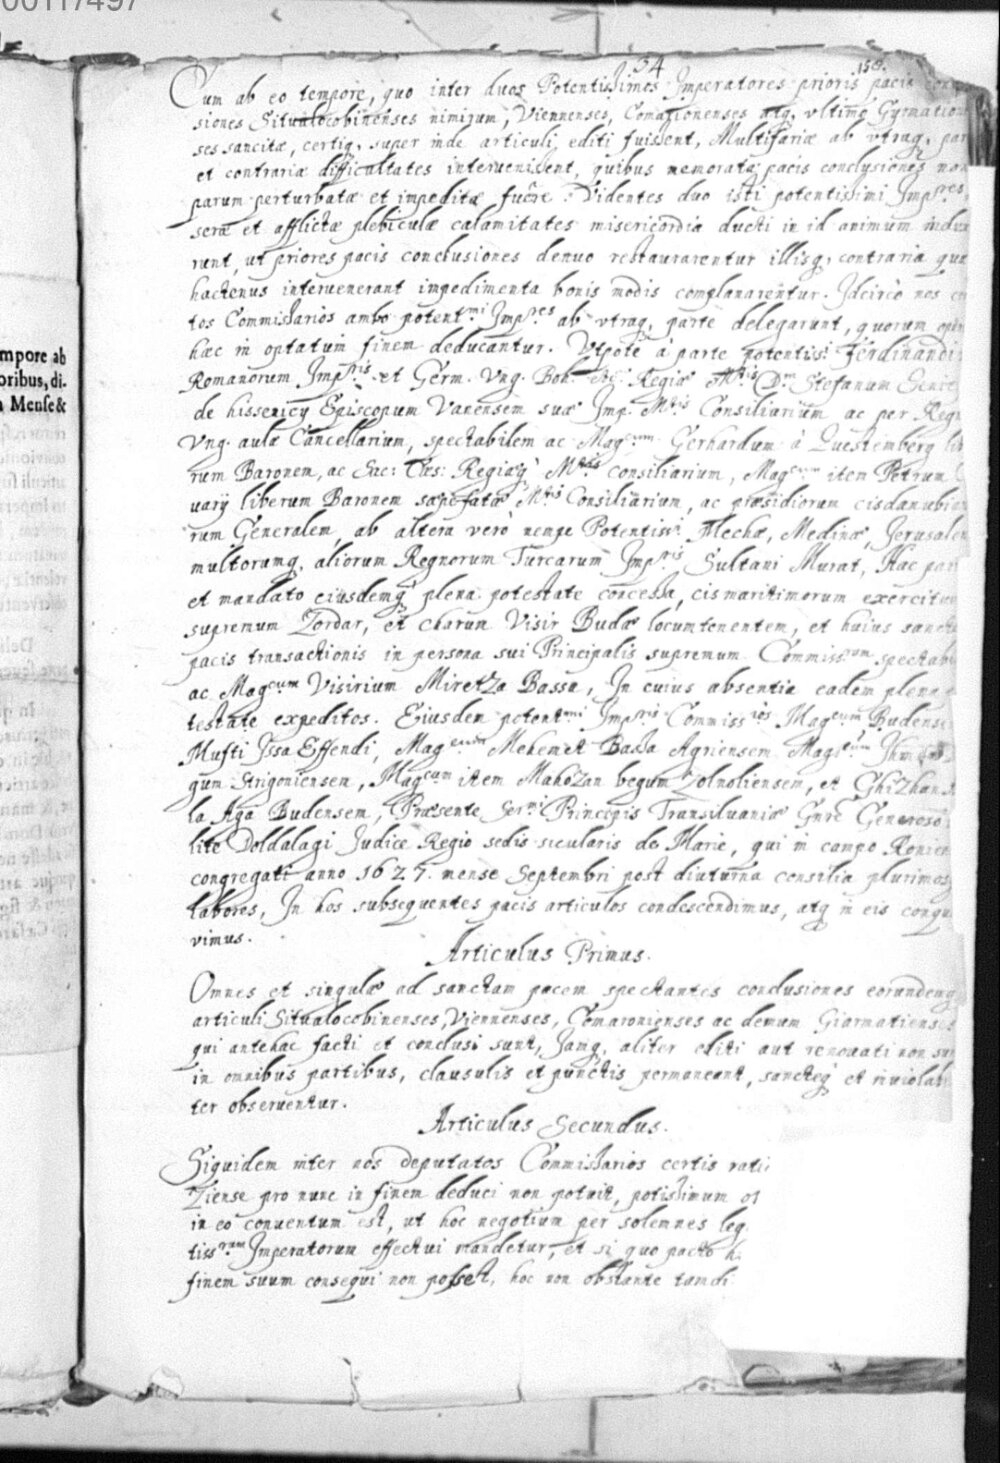 00117497
54 158.
Cum ab eo tempore, quo inter duos Potentissimos Imperatores prioris pacis
siones Situalocobinenses nimirum, Viennenses, Comaronenses atq, vltimo Gyrmation
ses sancitæ, certiq, super inde articuli editi fuissent, Multifariæ ab vtraq, par
et contrariæ difficultates interuenissent, quibus memoratæ pacis conclusiones non
parum perturbatæ et impeditæ fuêre. Videntes duo isti potentissimi Impres,
seræ et afflictæ plebiculæ calamitates misericordia ducti in id animum indux
runt, ut priores pacis conclusiones denuo restaurarentur illisq, contraria quæ
hactenus interuenerant impedimenta bonis modis complanarentur. Idcircò nos
tos Commissarios ambo potentmi Impres ab vtraq, parte delegarunt, quorum
hæc in optatum finem deducantur. Vtpote à parte potentiss: Ferdinandi
Romanorum Impris et Germ. Vng. Boh. etc. Regiæ Mttis Dm Stefanum Sene
de hissenicy Episcopum Vanensem suæ Imp. Mttis Consiliarium ac per Reg
Vng. aulæ Cancellarium, spectabilem ac Magcum Gerhardum à Questemberg lib
rum Baronem, ac Sac: Cæs: Regiæq Mttis consiliarium, Magcum item Petrum
uarÿ liberum Baronem sæpefatæ Mttis Consiliarium, ac præsidiorum cisdanubia
rum Generalem, ab altera verò nempe Potentiss: Mechæ, Medinæ, Jerusalem
multorumq, aliorum Regnorum Turcarum Impris Sultani Murat, Hac par
et mandato eiusdemq plena potestate concessa, cismaritimorum exercitu
supremum Zordar, et charum Visir Budæ locumtenentem, et huius sanctæ
pacis transactionis in persona sui Principalis supremum Commissrum spectabi
ac Magcum Visirium Miretza Bassa, In cuius absentia eadem plena
testate expeditos. Eiusdem potentmi Impris Commissrios Magcum Budense
Mufti Issa Effendi, Magcum Mehemet Bassa Agriensem Magcum
gum Strigoniensem, Magcum item Mahozan begum Zolnokiensem, et Ghizhan
la Aga Budensem, Præsente Sermi Principis Transiluaniæ Gnre Generoso
lite Doldalagi Judice Regio sedis sicularis de Marie, qui in campo
congregati anno 1627. mense Septembri post diuturna consilia plurimos
labores, In hos subsequentes pacis articulos condescendimus, atq in eis conqu
vimus.
Articulus Primus.
Omnes et singulæ ad sanctam pacem spectantes conclusiones eorundemq
articuli Situalocobinenses, Viennenses, Comaronienses ac demum Giarmatienses
qui antehac facti et conclusi sunt, Jamq, aliter editi aut renouati non su
in omnibus partibus, clausulis et punctis permaneant, sancteq et inuiolabi
ter obseruentur.
Articulus Secundus.
Siquidem inter nos deputatos Commissarios certis rati
Ziense pro nunc in finem deduci non potuit, potissimum
in eo conuentum est, ut hoc negotium per solemnes leg
tissrum Imperatorum effectui mandetur, et si quo pacto
finem suum consequi non posset, hoc non obstante tamdi
mpore ab
oribus, di-
Mense &